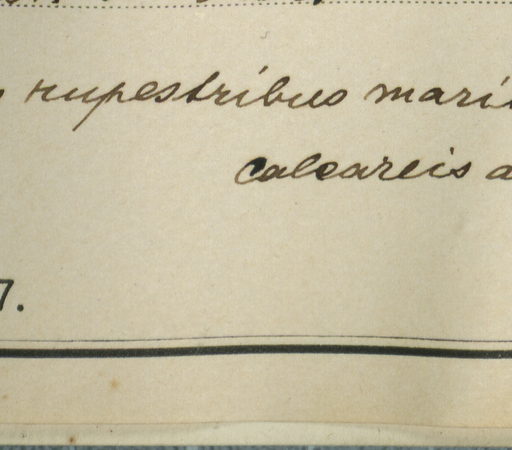 rupestribus mari
calcareis a
7.